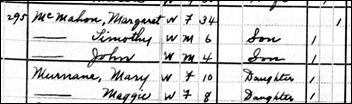 295 McMahon, Margaret W F 34 1
—— Timothy W M 6 Son 1
—— John W M 4 Son 1
Murnane, Mary W F 10 Daughter 1
—— Maggie W F 8 Daughter 1